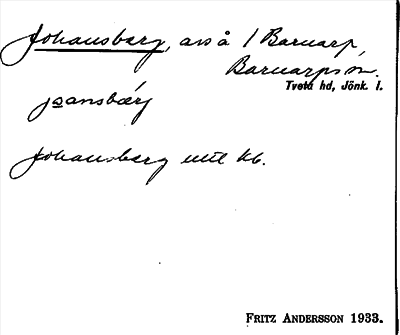 Johansberg, avs å 1 Barnarp,
Barnarps sn.
Tveta hd, Jönk. l.
jɷansbærj
Johansberg utt kb.
FRITZ ANDERSSON 1933.